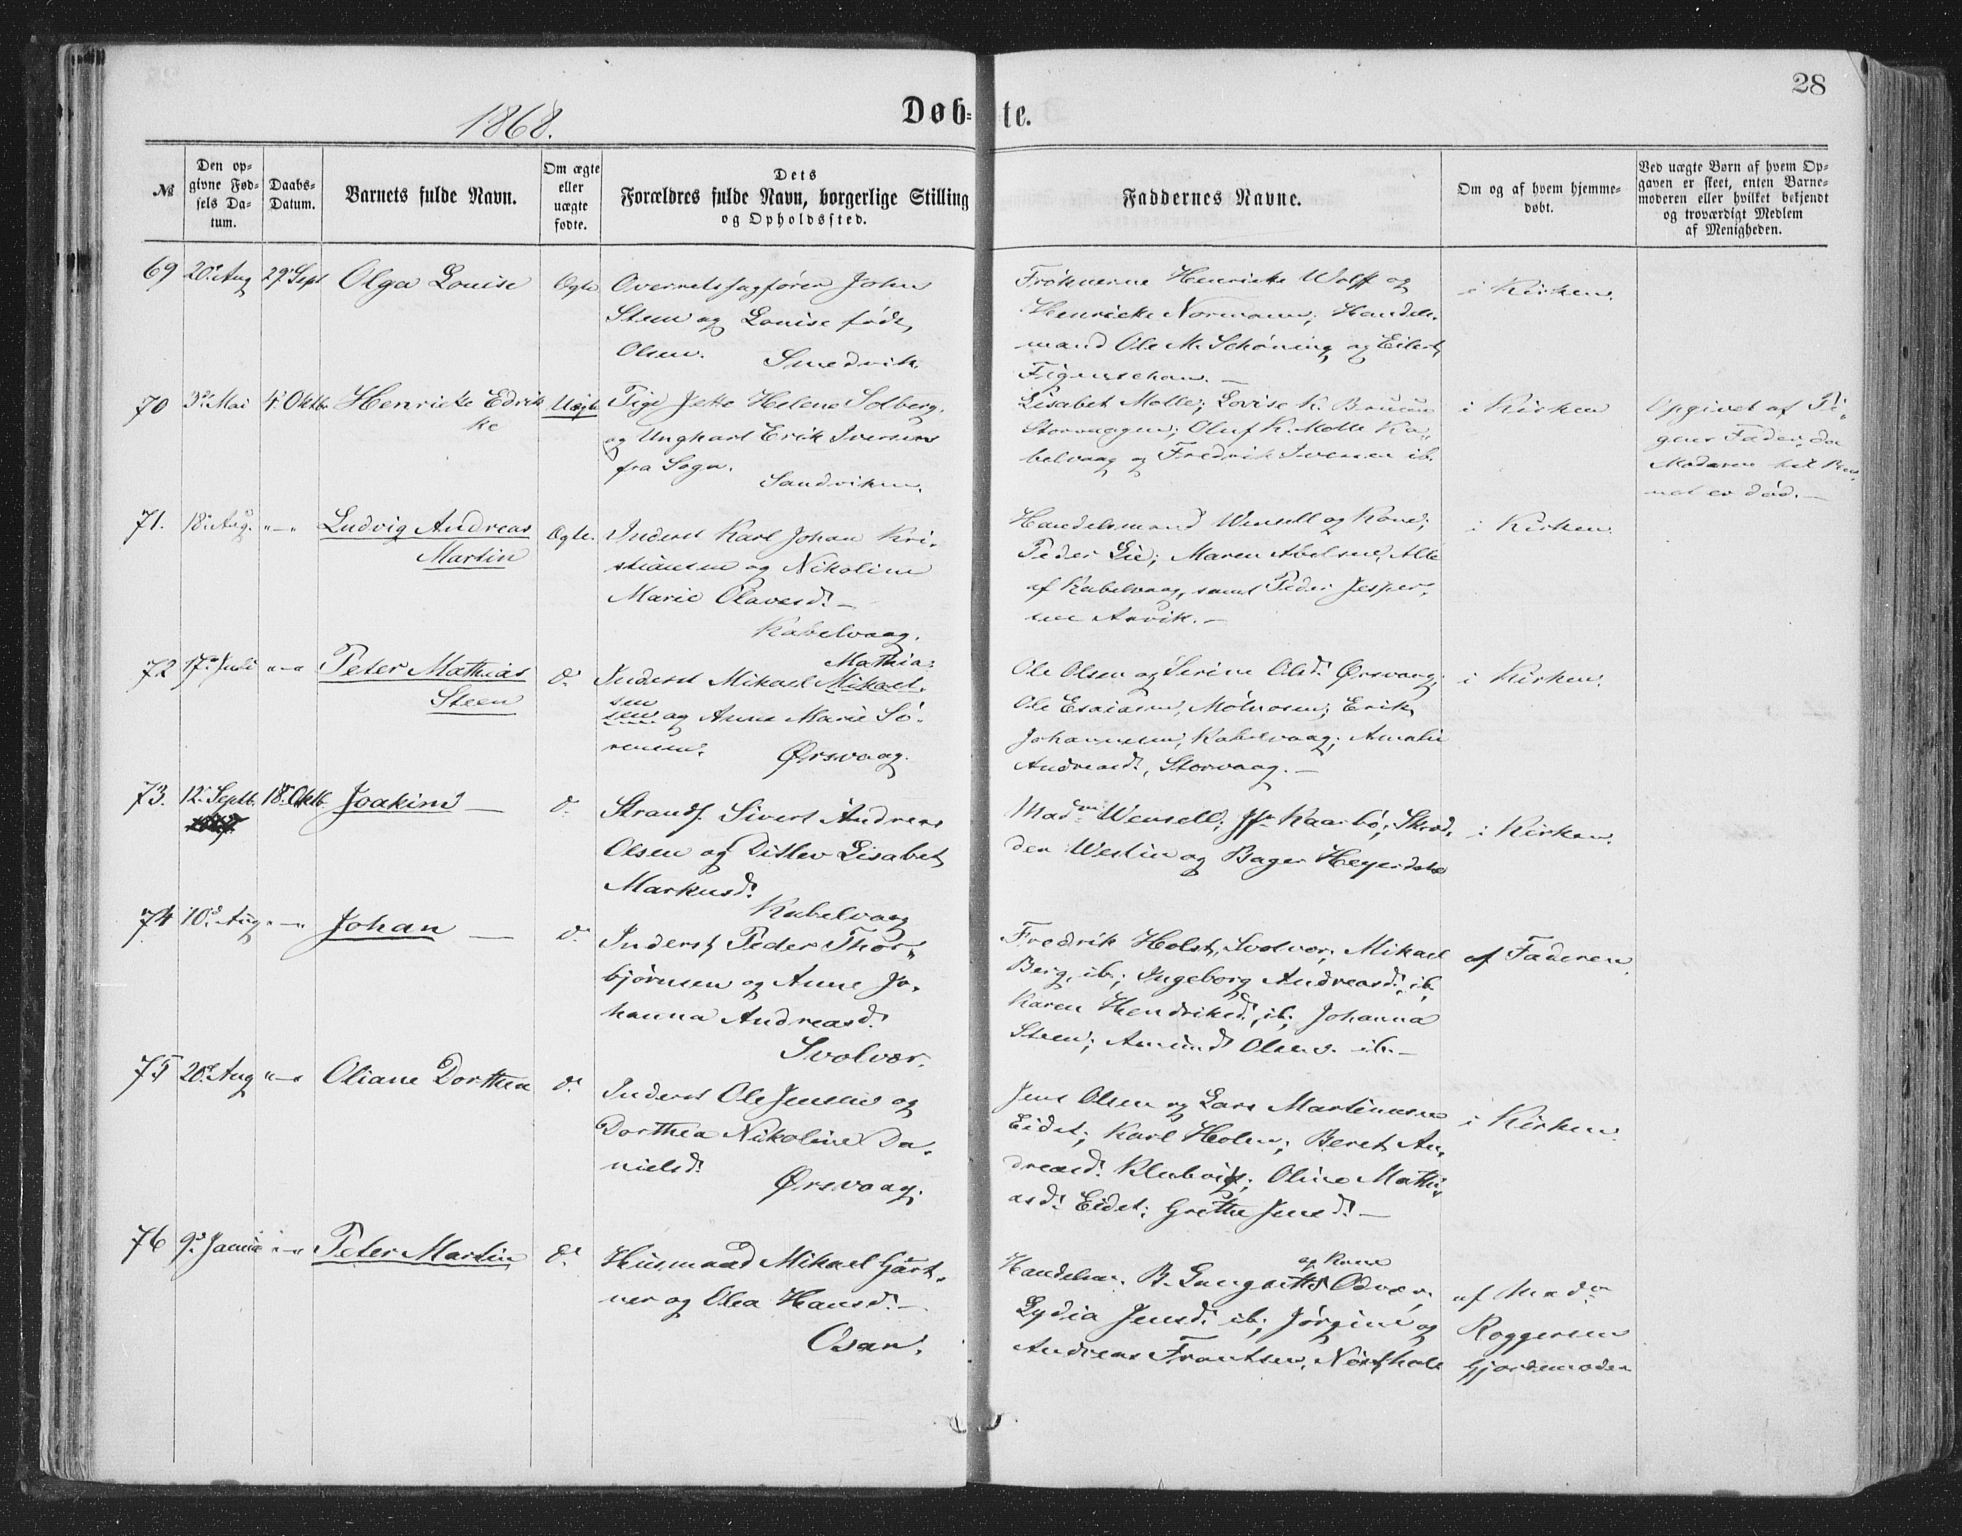 28
1868.
Døb-te.
№
Den opgivne Fødsels Datum.
Daabs-Datum.
Barnets fulde Navn.
Om ægte eller uægte fødte.
Dets Forældres fulde Navn, borgerlige Stilling og Opholdssted.
Faddernes Navne.
Om og af hvem hjemmedøbt.
Ved uægte Børn af hvem Opgaven er skeet, enten Barnemoderen eller hvilket bekjendt og troværdigt Medlem af Menigheden.
69 20de Aug 29de Sept Olga Louise Ægte
Overretssagfører John
Steen og Louise født
Olsen. Smedvik
Frøknerne Henrieke Wolff og
Henrieke Normann; Handels-
mand Ole M. Schøning og Eilert
Figenschou. —
i Kirken.
70 3de Mai 4de Oktbr Henrieke Edrik
ke
Uægte
Pige Jette Helene Solberg,
og Ungkarl Erik Iversen
fra Sogn.
Sandviken.
Lisabet Molle; Lovise K. Bruun
Storvaagen; Oluf K. Molle Ka-
belvaag og Fredrik Iversen ib.
i Kirken
Opgivet af Pi-
gens Fader, da
Moderen til Bar-
net er død. —
71. 18de Aug. "—" Ludvig Andreas
Martin
Ægte.
Inderst Karl Johan Kri-
stiansen og Nikoline
Marie Olavesd. —
Kabelvaag.
Handelsmand Wensell og Kone;
Peder Lie; Maren Abelsen, Alle
af Kabelvaag, samt Peder Jesper-
sen Anvik. —
i Kirken.
72 17de Juli "—" Peter Mathias
Steen
do
Mathia-
Inderst Mikael Mikael-
sen
sen og Anne Marie Sø-
rensen.
Ørsvaag.
Ole Olsen og Serine Olsd. Ørsvaag;
Ole Esaiasen, Molnosen; Erik
Johannesen, Kabelvaag; Amalie
Andreasd., Storvaag. —
i Kirken.
73. 12te Septb. 18de Oktb. Joakim — do
Strands. Sivert Andreas
Olsen og Ditlev Lisabet
Markusd.
Kabelvaag
Madm Wensell; Jfr Kaarbø; Skræd-
der Westin og Bager Heyerdahl
i Kirken.
74 10de Aug "—" Johan — do
Inderst Peder Thor-
bjørnsen og Anne Jo-
hanna Andreasd.
Svolvær.
Fredrik Holst, Svolvær; Mikael
Berg, ib.; Ingeborg Andreasd. ib.
Karen Hendriksd. ib.; Johanna
Steen; Amund Olsen. ib. —
af Faderen.
75 20de Aug "—" Oliane Dorthea do
Inderst Ole Jensen og
Dorthea Nikoline Da-
nielsd.
Ørsvaag.
Jens Olsen og Lars Martinusen
Eidet; Karl Holm; Beret An-
dreasd. Klubvig; Oline Mathi-
asd. Eidet; Grethe Jensd. —
i Kirken.
76 9de Januar "—" Peter Martin do
Husmand Mikael Gart-
ner og Olea Hansd. —
Osan.
og Kone
Handelsm. B. Odvær;
Lydia Jensd. ib; Jørgine og
Andreas Frantsen,
af Madm
Roggersen
Gjordemoder